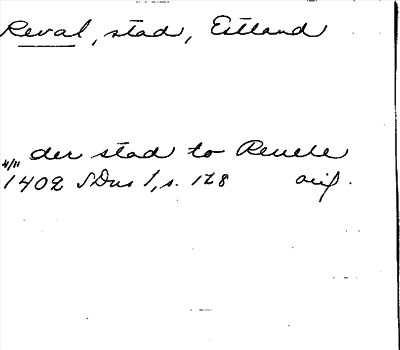 Reval, stad, Estland
der stad to Reuele
4/11 1402 SDns 1, s. 128 orig.